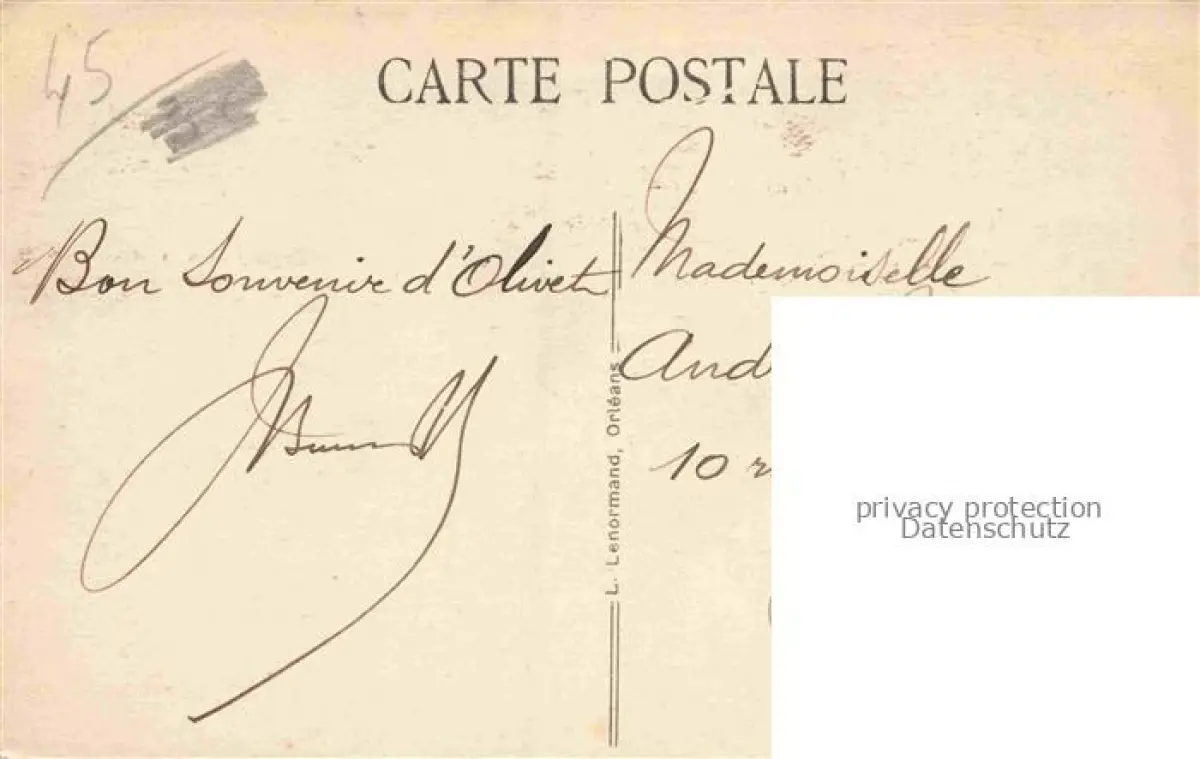 45
CARTE POSTALE
Bon Souvenir d'Olivet
Mademoiselle
And
10 r
L. Lenormand, Orléans
privacy protection
Datenschutz